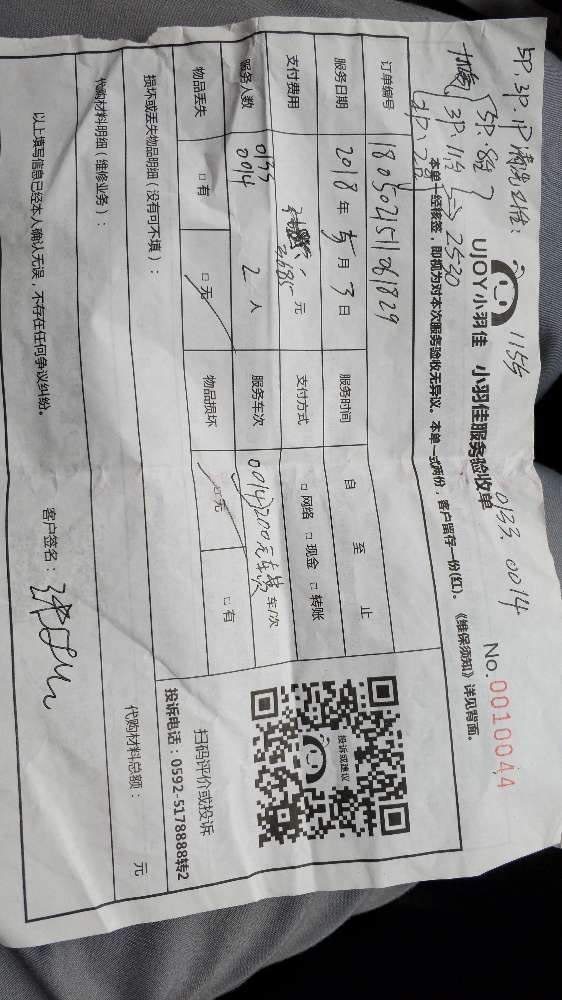 5P.3P.1P清洗21台: 1155 0133. 0014
5P.8台
3P.11台 2530
UJOY小羽佳 小羽佳服务验收单 No.0010044
本单一经核签，即视为对本次服务验收无异议。本单一式两份，客户留存一份(红)。《维保须知》详见背面。
订单编号 1805024511061829
服务日期 2018年5月3日 服务时间 自 至 止
支付费用 元 支付方式 □网络 □现金 □转账
服务人数 0133 0014 2人 服务车次 0014)200元车费 车/次
物品丢失 □有 □无 物品损坏 □无 □有
损坏或丢失物品明细（没有可不填）：
投诉或建议
扫码评价或投诉
投诉电话：0592-5178888转2
代购材料明细（维修业务）： 代购材料总额： 元
以上填写信息已经本人确认无误，不存在任何争议纠纷。 客户签名：